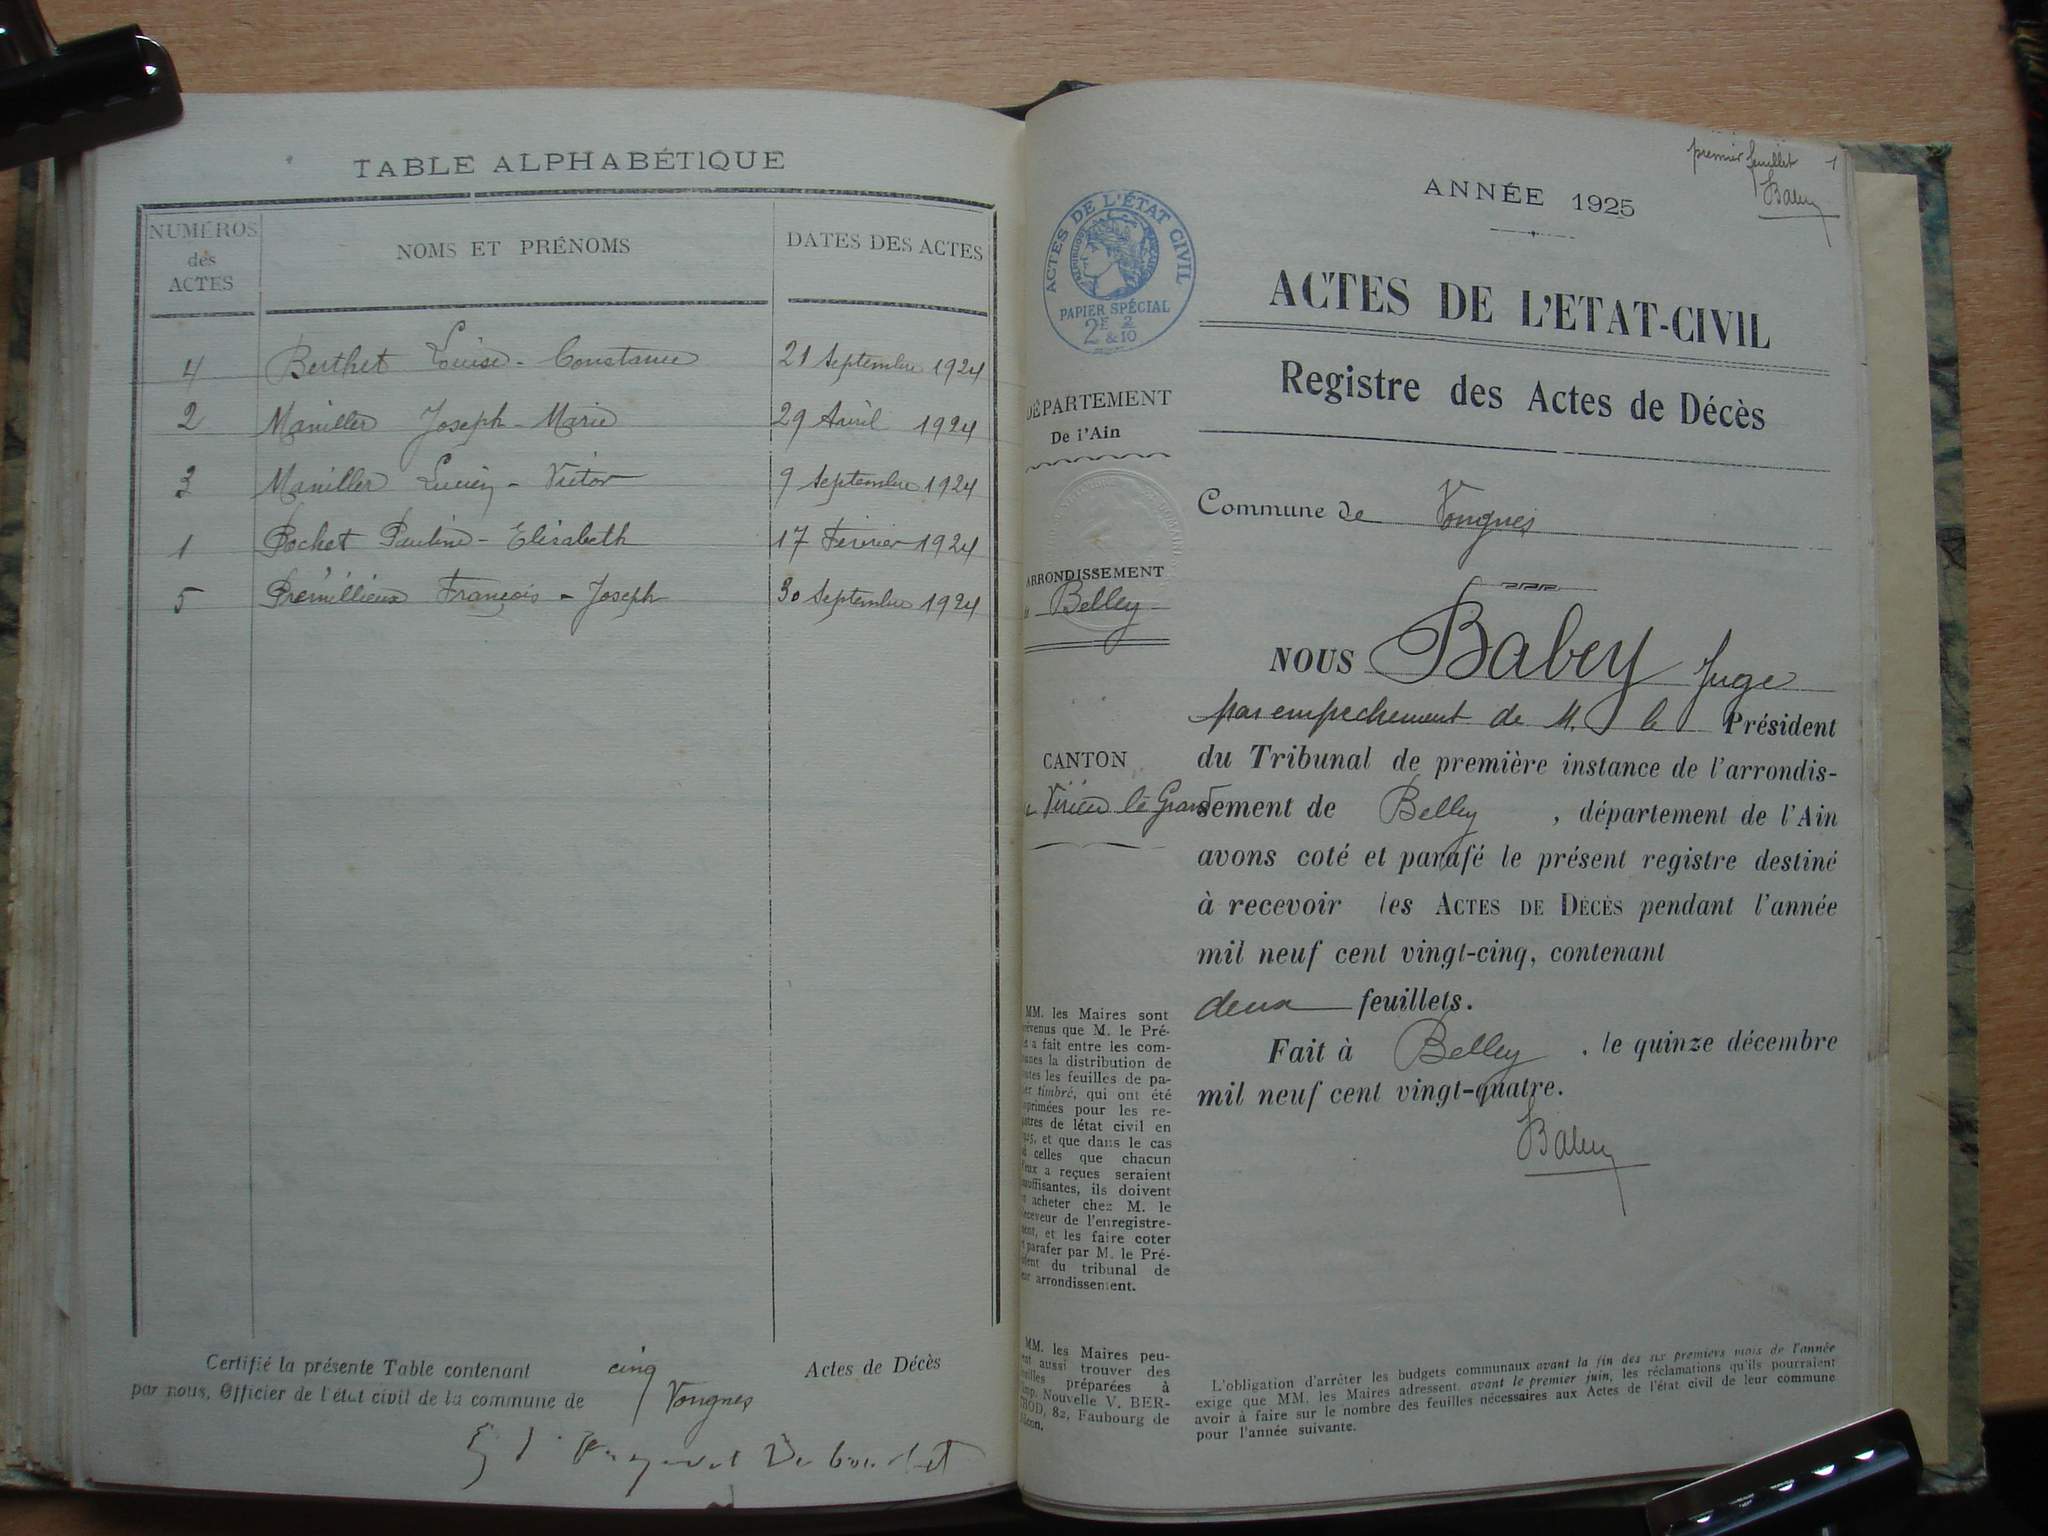 TABLE ALPHABÉTIQUE
NUMÉROS des ACTES
NOMS ET PRÉNOMS
DATES DES ACTES
4 Berthet Louise - Constance 21 Septembre 1924
2 Maniller Joseph - Marie 29 Avril 1924
3 Maniller Lucien - Victor 9 Septembre 1924
1 Pochet Pauline - Elisabeth 17 Février 1924
5 Prémillieux François - Joseph 30 Septembre 1924
Certifié la présente Table contenant cinq Actes de Décès
par nous, Officier de l'état civil de la commune de Vongnes
premier feuillet 1
Babey
ANNÉE 1925
ACTES DE L'ÉTAT CIVIL
PAPIER SPÉCIAL
2F 2
& 10
ACTES DE L'ETAT-CIVIL
Registre des Actes de Décès
DÉPARTEMENT
De l'Ain
Commune de Vongnes
ARRONDISSEMENT
Belley
CANTON
Virieu le Grand
NOUS Babey Juge
par empechement de M. le Président
du Tribunal de première instance de l'arrondis-
sement de Belley, département de l'Ain
avons coté et parafé le présent registre destiné
à recevoir les ACTES DE DÉCÈS pendant l'année
mil neuf cent vingt-cinq, contenant
deux feuillets.
Fait à Belley, le quinze décembre
mil neuf cent vingt-quatre.
Babey
MM. les Maires sont
prévenus que M. le Pré-
fet a fait entre les com-
munes la distribution de
toutes les feuilles de pa-
pier timbré, qui ont été
imprimées pour les re-
gistres de létat civil en
1925, et que dans le cas
où celles que chacun
d'eux a reçues seraient
insuffisantes, ils doivent
en acheter chez M. le
Receveur de l'enregistre-
ment, et les faire coter
et parafer par M. le Pré-
sident du tribunal de
leur arrondissement.
MM. les Maires peu-
vent aussi trouver des
feuilles préparées à
Imp. Nouvelle V. BER-
THOD, 82, Faubourg de
Mâcon.
L'obligation d'arrêter les budgets communaux avant la fin des six premiers mois de l'année
exige que MM. les Maires adressent, avant le premier juin, les réclamations qu'ils pourraient
avoir à faire sur le nombre des feuilles nécessaires aux Actes de l'état civil de leur commune
pour l'année suivante.